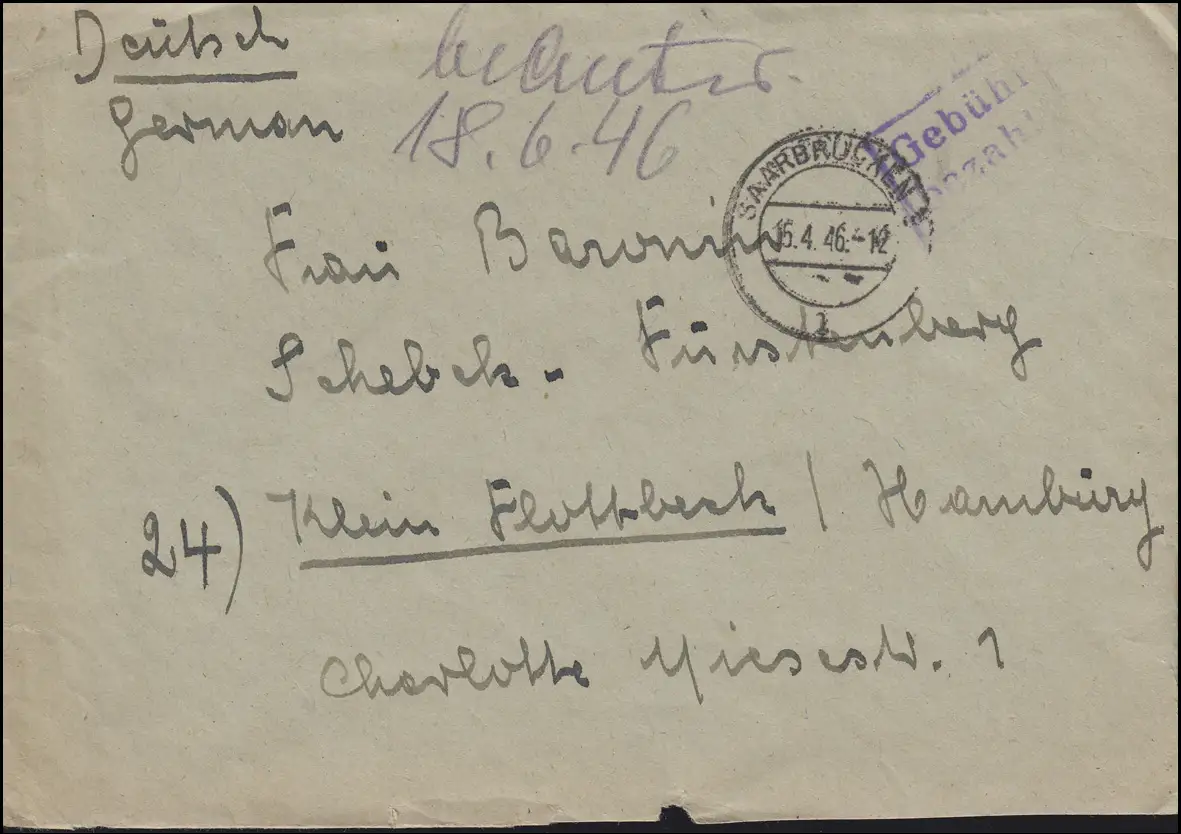 Deutsch
German
beantw.
18.6.46
Gebühr
bezahlt
SAARBRÜCKEN
15.4.46.-12
Frau Baronin
Schebek - Fürstenberg
24) Klein Flottbeck / Hamburg
Charlotte Niesestr. 1